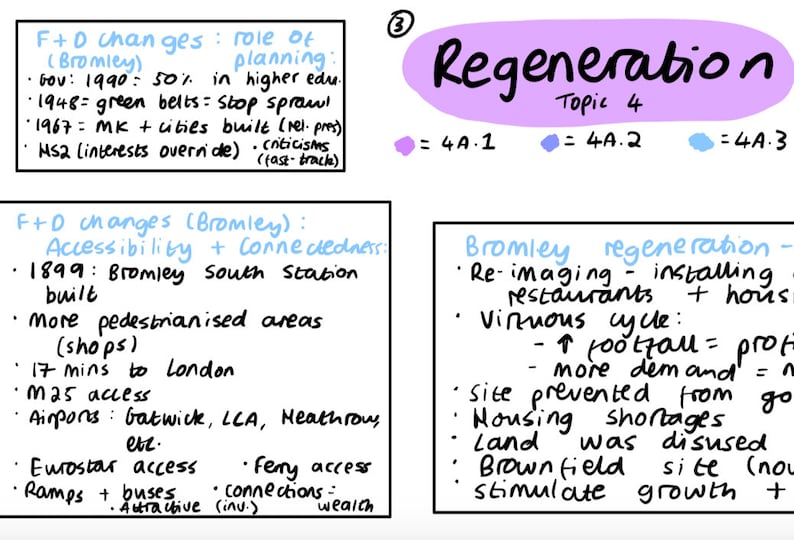 F+D changes : role of
(Bromley) planning:
· Gov: 1990 = 50% in higher edu.
· 1948 = green belts = stop sprawl
· 1967 = MK + cities built (rel. pres)
· HS2 (interests override) · criticisms
(fast-track)
③
Regeneration
Topic 4
= 4A.1 = 4A.2 = 4A.3
F+D changes (Bromley) :
Accessibility + Connectedness:
· 1899 : Bromley South Station
built
· More pedestrianised areas
(shops)
· 17 mins to London
· M25 access
· Airports : Gatwick, LCA, Heathrow,
etc.
· Eurostar access · Ferry access
· Ramps + buses · connections =
· Attractive (inv.) wealth
Bromley regeneration -
· Re-imaging - installing
restaurants + hous
· Virtuous cycle:
- ↑ footfall = prof
- more demand =
· Site prevented from go
· Housing shortages
· Land was disused
· Brownfield site (no
· Stimulate growth +